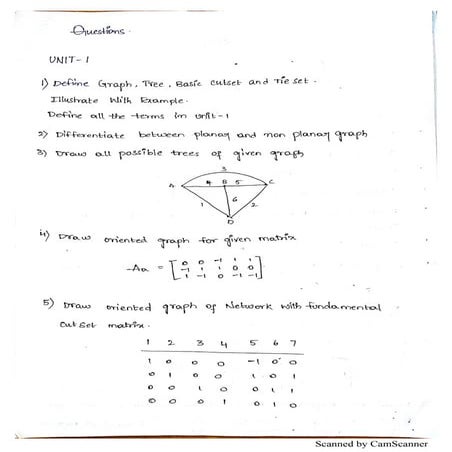 Questions.
UNIT-1
1) Define Graph, Tree, Basic cutset and Tie set.
Illustrate With Example.
Define all the terms in unit-1
2) Differentiate between planar and non planar graph
3) Draw all possible trees of given graph
3
A 4 B 5 C
6
1 2
D
4) Draw oriented graph for given matrix
Aa = [ 0 0 -1 1 1
-1 1 1 0 0
1 -1 0 -1 -1 ]
5) Draw oriented graph of Network with fundamental
Cut Set matrix.
1 2 3 4 5 6 7
1 0 0 0 -1 0 0
0 1 0 0 1 0 1
0 0 1 0 0 1 1
0 0 0 1 0 1 0
Scanned by CamScanner